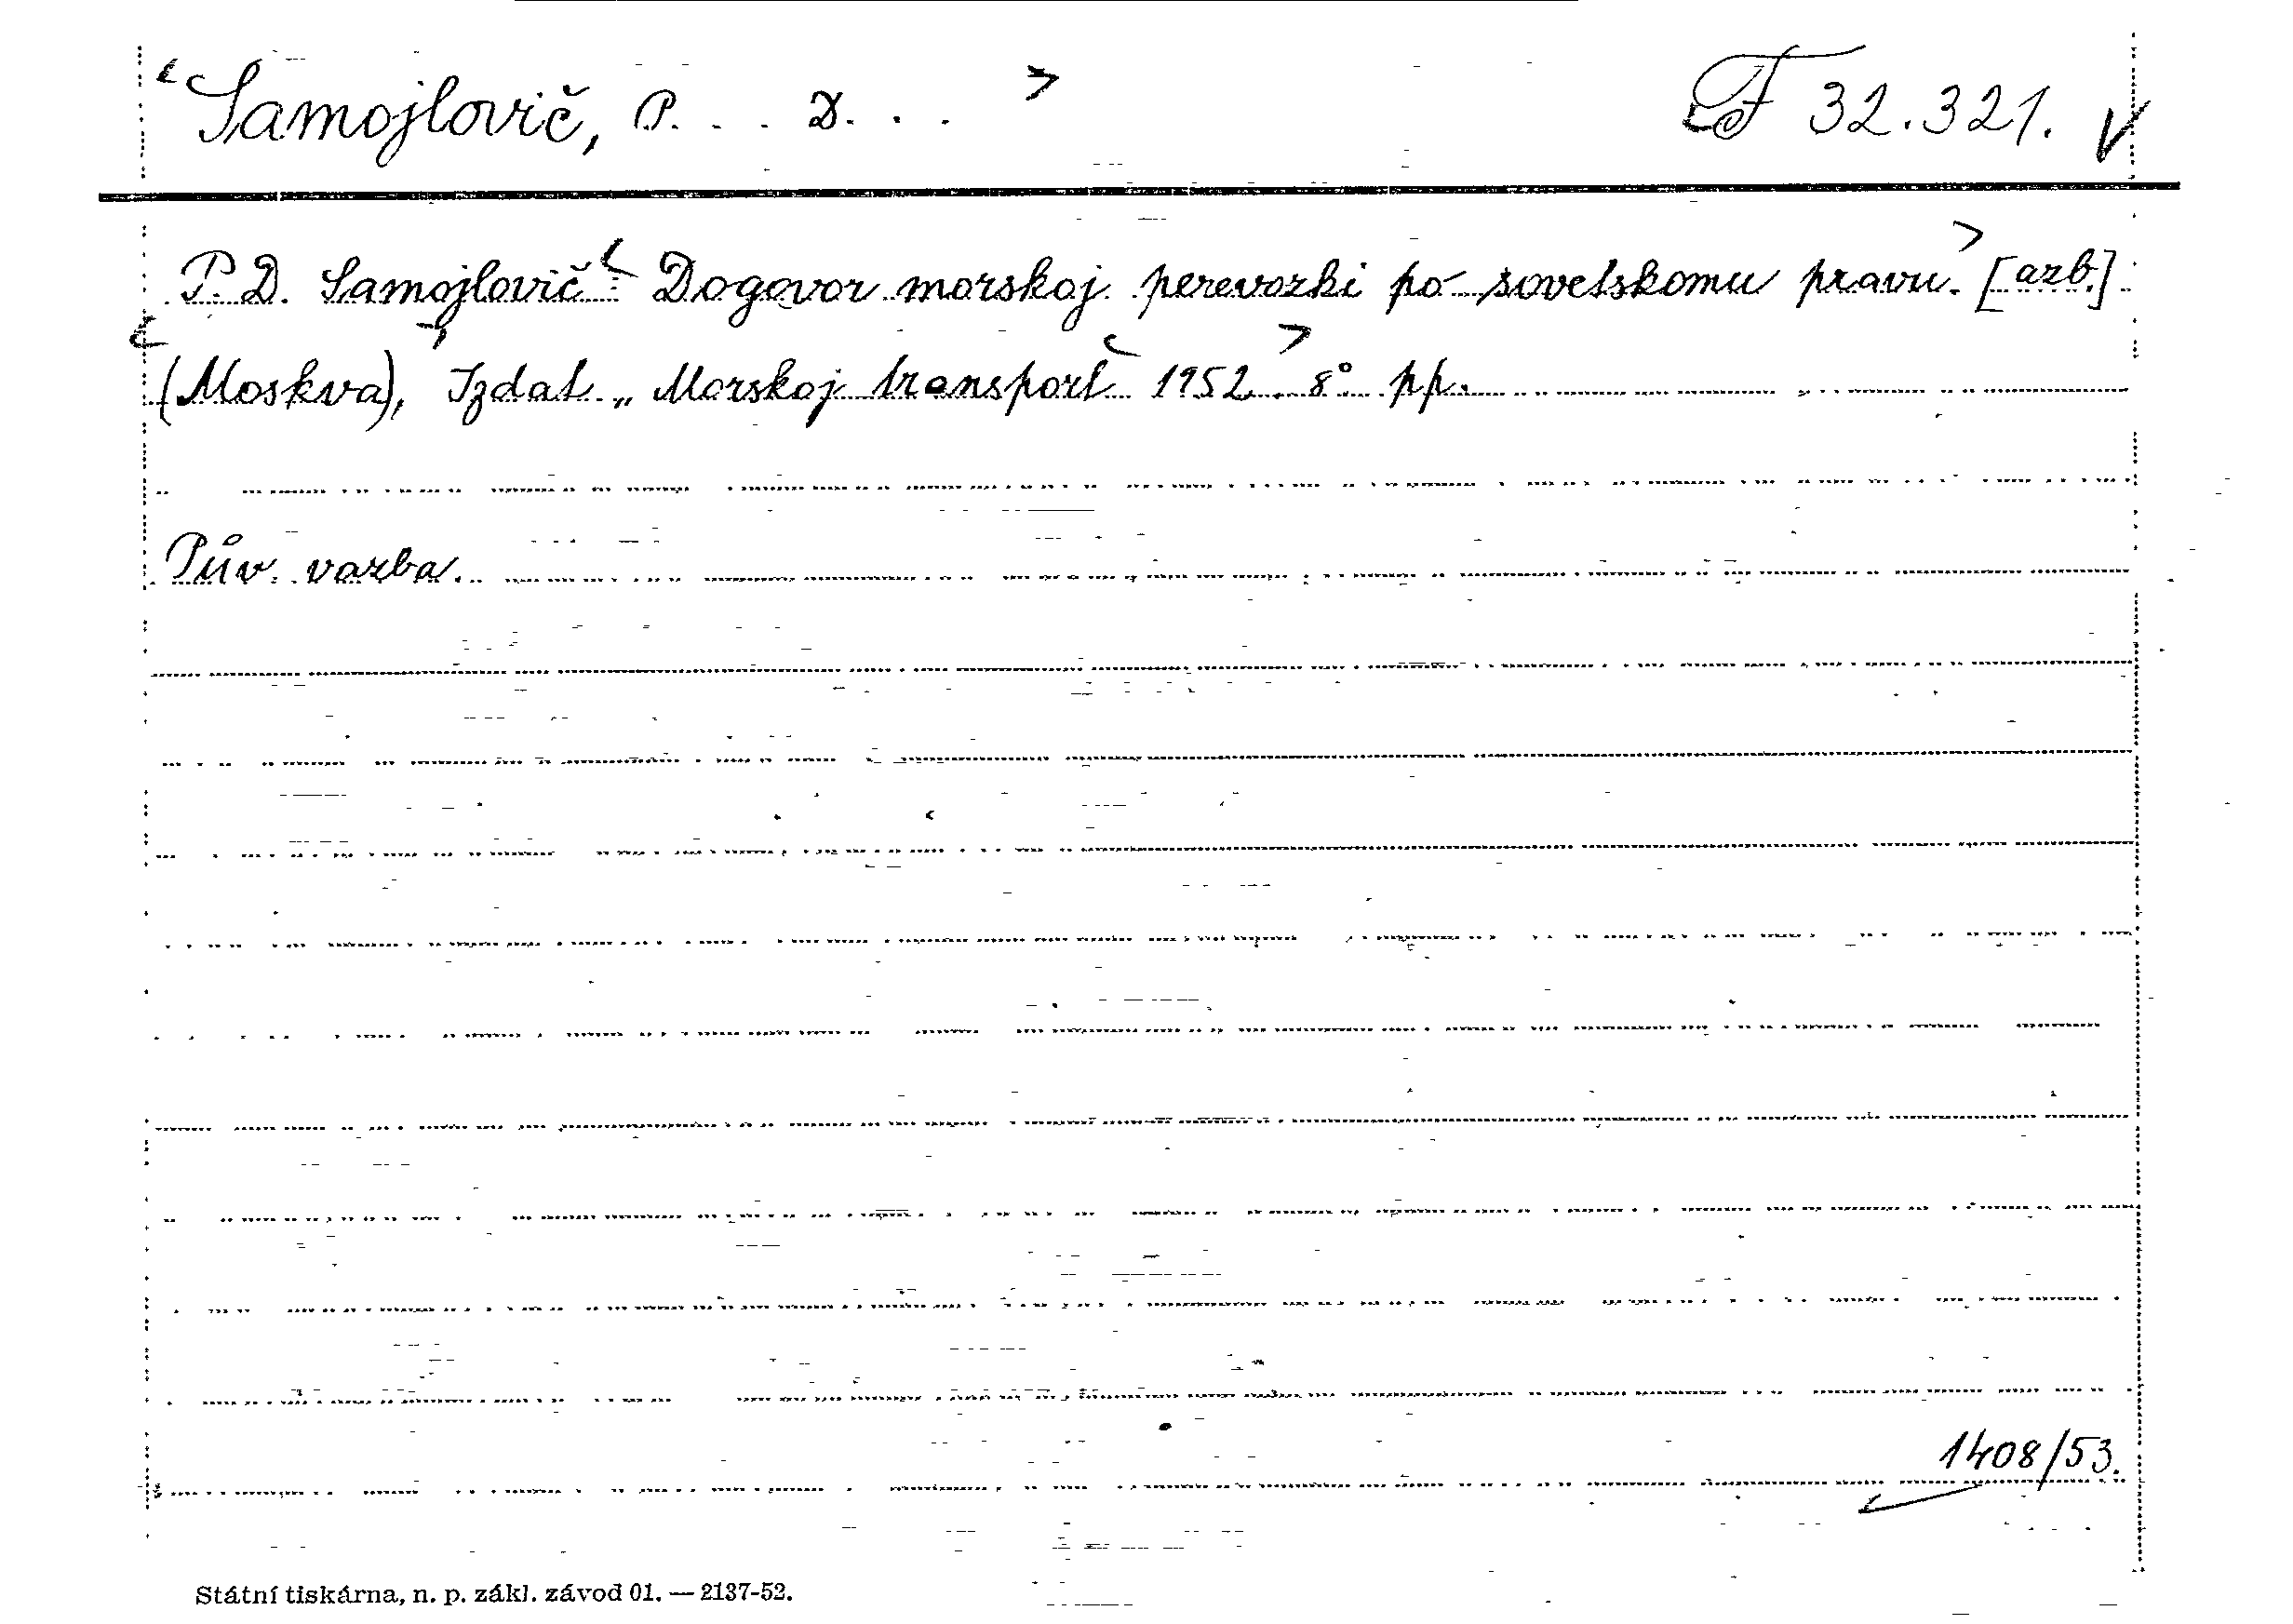 Samojlovič, P. . . D. . . F 32.321.
P. D. Samojlovič: Dogovor morskoj perevozki po sovetskomu pravu. [azb.]
(Moskva), Izdat. „Morskoj transport" 1952. 8° pp.
Pův. vazba.
1408/53.
Státní tiskárna, n. p. zákl. závod 01. — 2137-52.